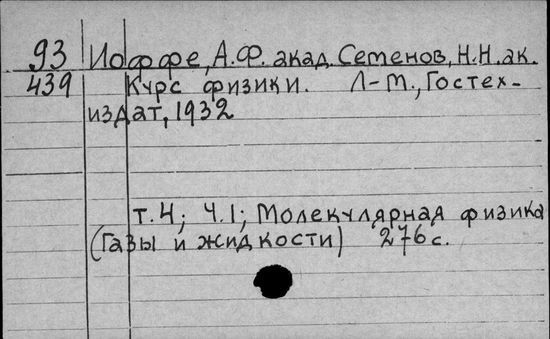 93 Иоффе, А.Ф. акад. Семенов, Н.Н. ак.
439 Курс физики. Л-М., Гостех-
издат, 1932
т.4; Ч.1; Молекулярная физика
(Газы и жидкости) 276 с.